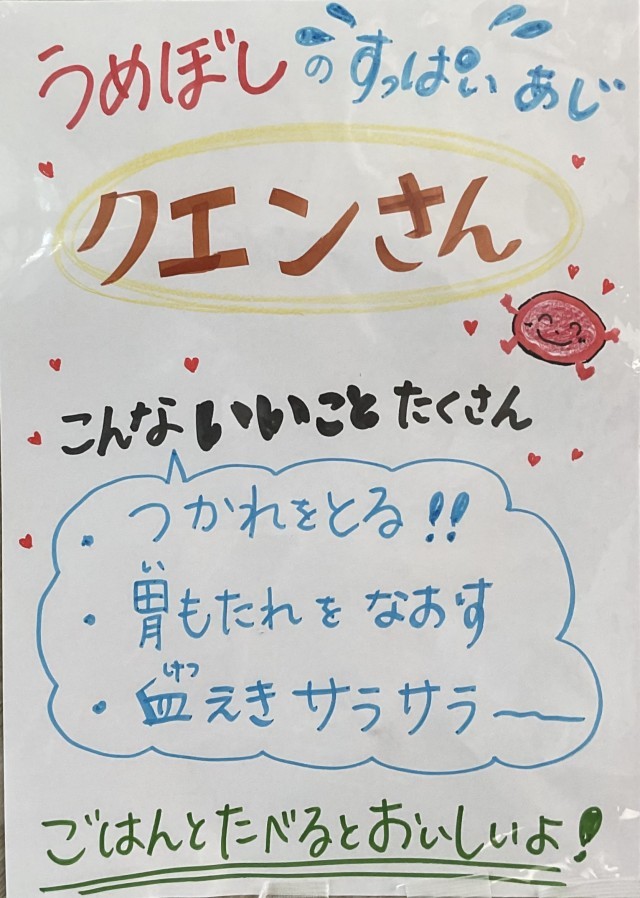 うめぼしのすっぱいあじ
クエンさん
こんないいことたくさん
・つかれをとる!!
い
・胃もたれをなおす
けつ
・血えきサラサラ〜
ごはんとたべるとおいしいよ!